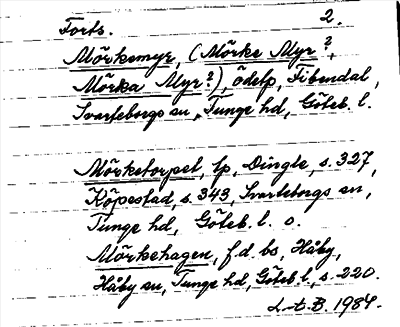 Forts. 2.
Mörkemyr, (Mörke Myr?,
Mörka Myr?), ödelp, Fibendal,
Svarteborgs sn, Tunge hd, Göteb. l.
Mörketorpet, lp, Dingle, s. 327,
Köpestad, s. 343, Svarteborgs sn,
Tunge hd, Göteb. l. o.
Mörkehagen, f.d. bs, Håby,
Håby sn, Tunge hd, Göteb. l., s. 220.
1984.